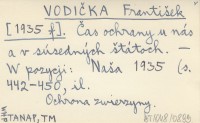 VODIČKA František
[1935 r]. Čas ochrany u nás
a v súsedných štátoch. —
W pozycji: Naša 1935 (s.
442-450, il.
Ochrona zwierzyny.
TANAP, TM